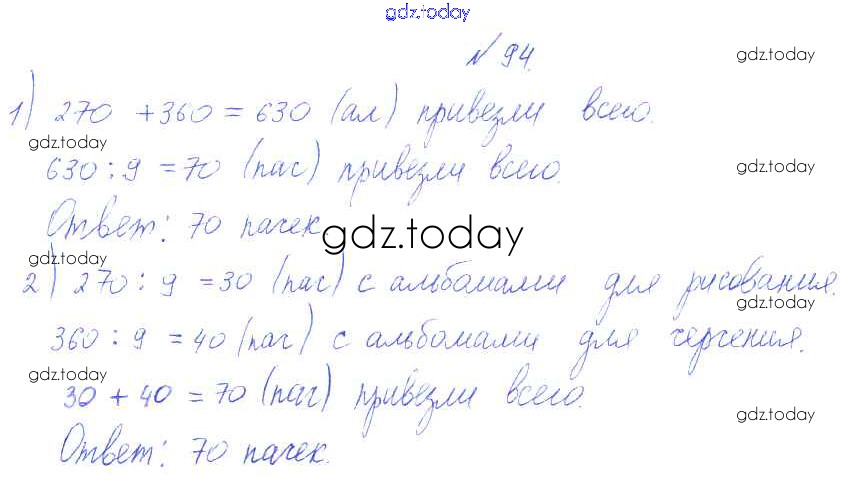 gdz.today
№ 94.
gdz.today
1) 270 + 360 = 630 (ал) привезли всего.
gdz.today
630 : 9 = 70 (пас) привезли всего.
gdz.today
Ответ: 70 пачек.
gdz.today
gdz.today
2) 270 : 9 = 30 (пас) с альбомами для рисования.
gdz.today
360 : 9 = 40 (паг) с альбомами для черчения.
gdz.today
30 + 40 = 70 (паг) привезли всего.
gdz.today
Ответ: 70 пачек.